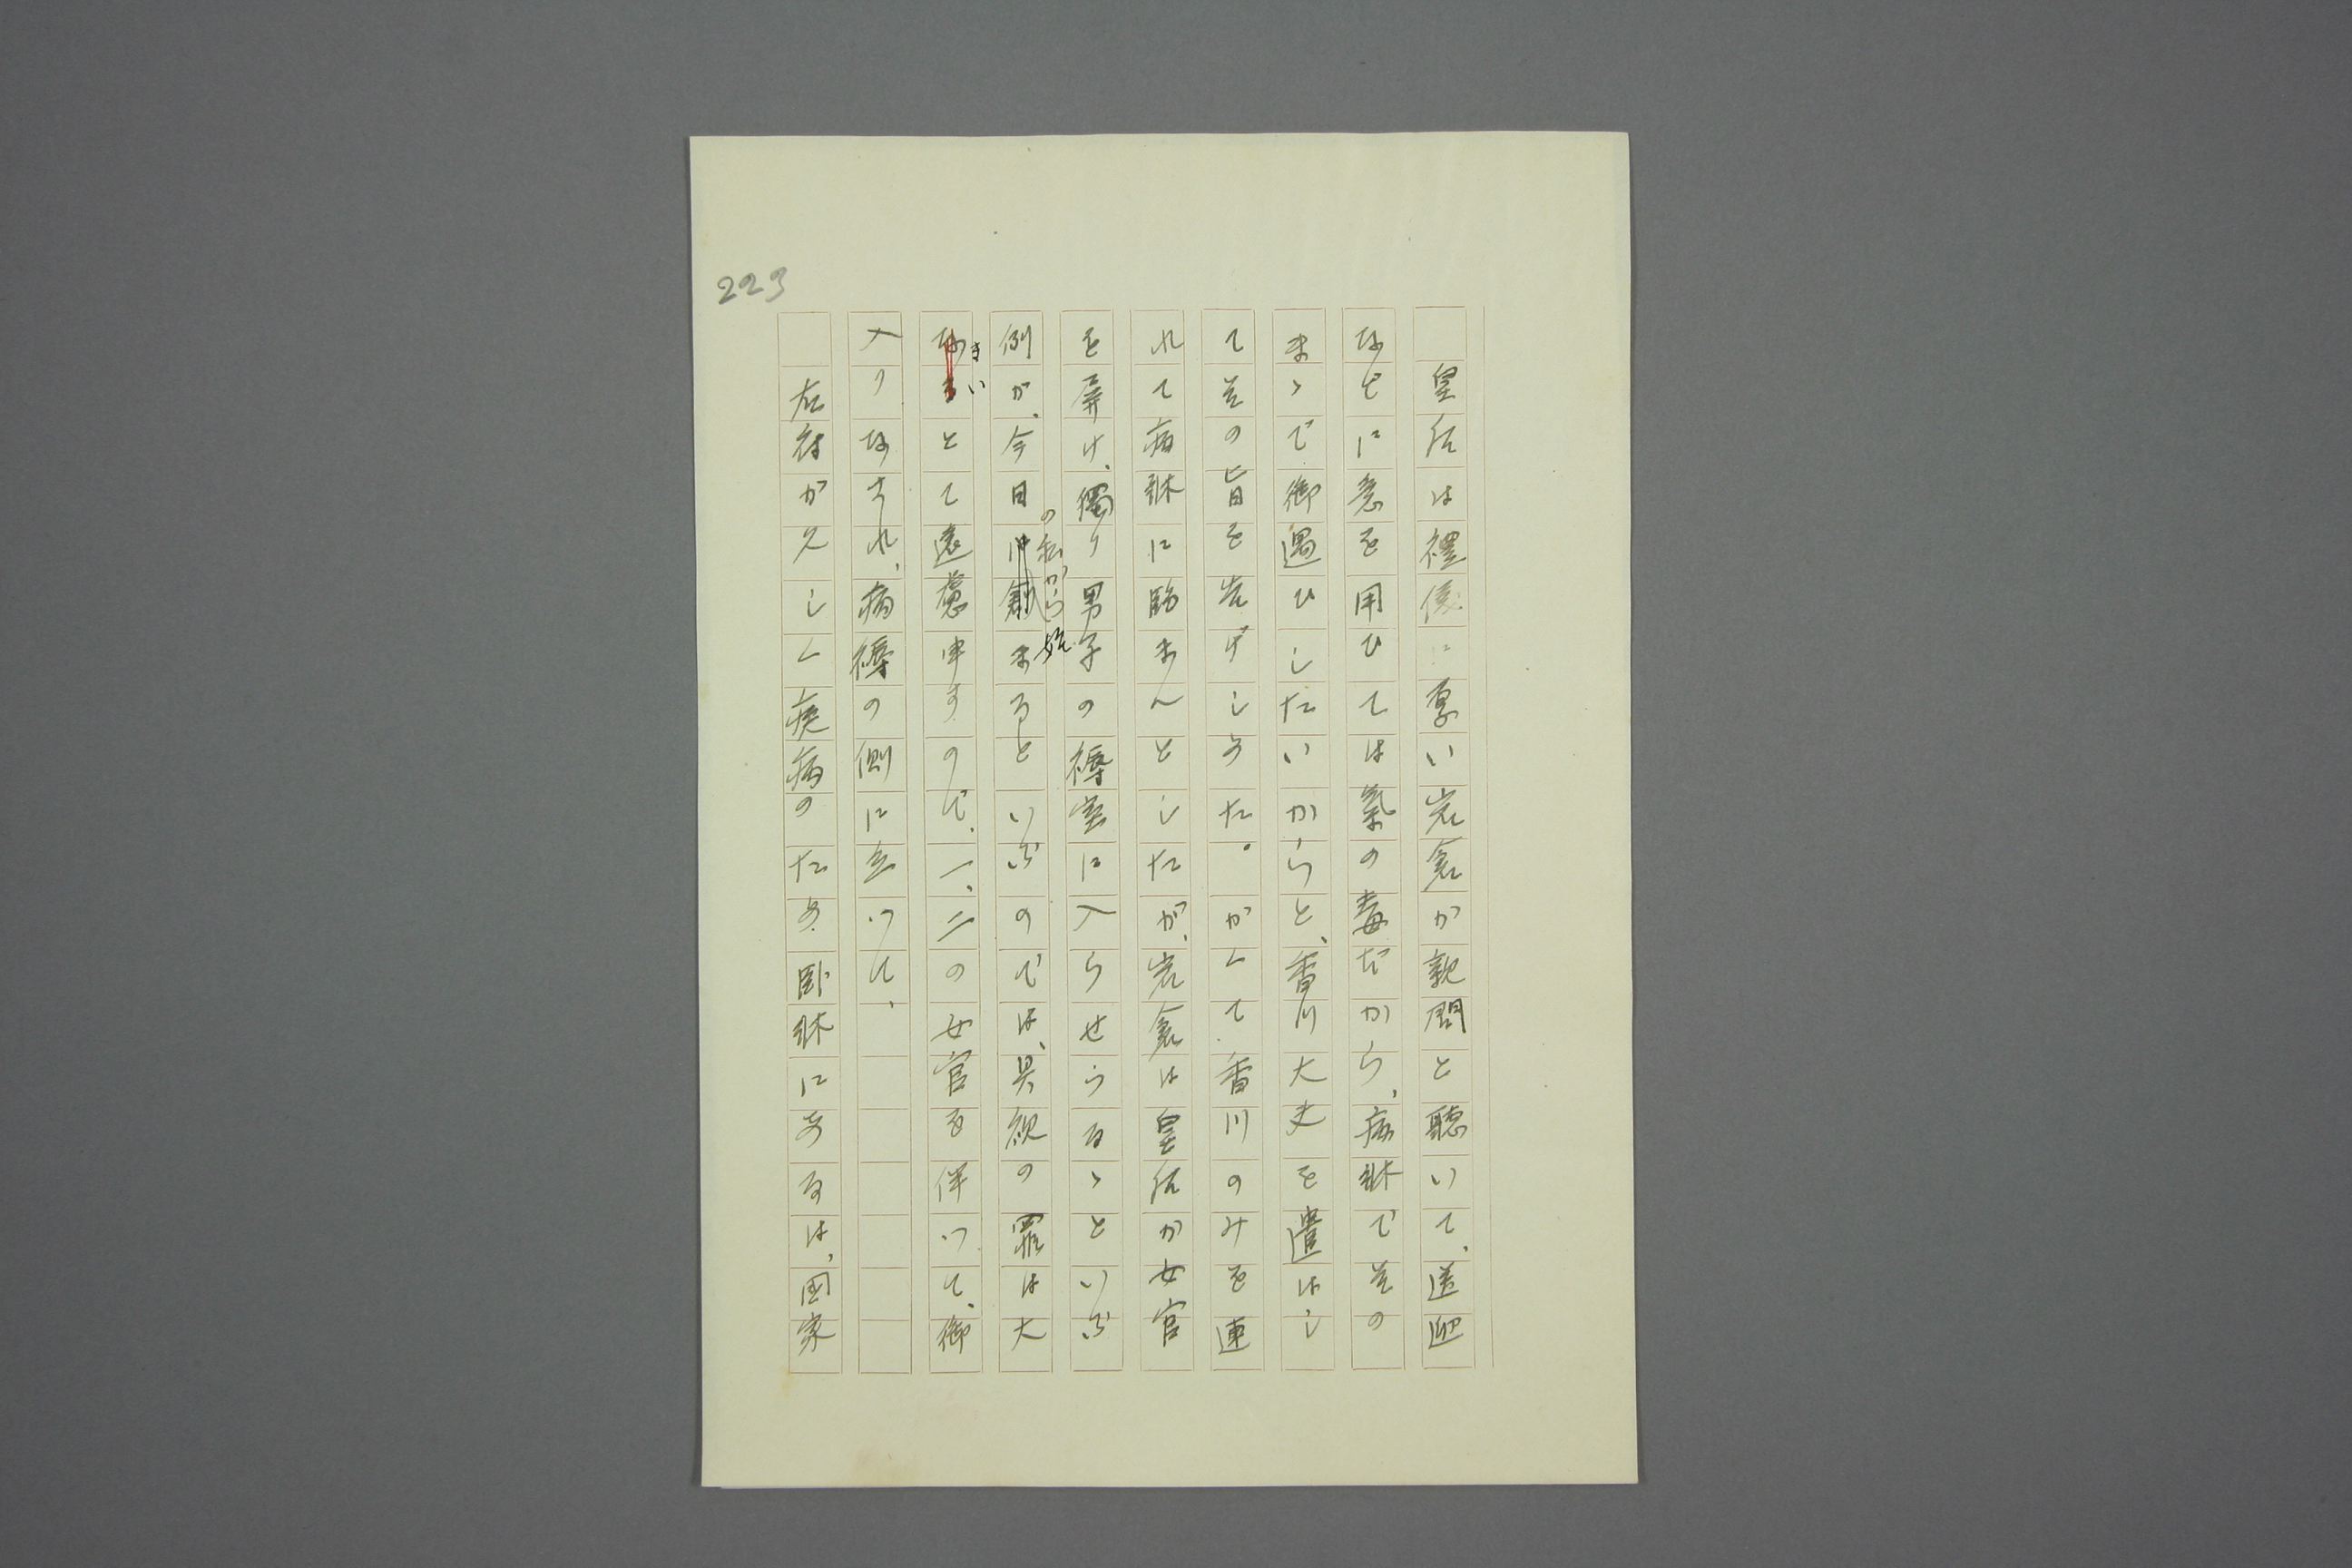 223
皇后は禮儀に厚い岩倉が親問と聴いて、送迎
などに意を用ひては氣の毒だから、病牀で其の
まゝで御遇ひしたいからと、香川大夫を遣はし
て其の旨を告げしめた。かくて香川のみを連
れて病牀に臨まんとしたが、岩倉は皇后が女官
を屏け、獨り男子の褥室に入らせらるゝといふ
例が、今日の私から始まるといふのでは、具視の罪は大
きいとて遠慮申すので、一、二の女官を伴つて、御
入りなされ、病褥の側に立つて、
右府が久しく疾病のため臥牀にあるは、国家